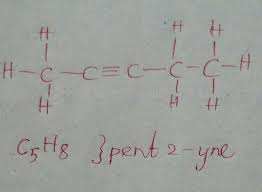 H H H
H-C-C≡C-C-C-H
H H H
C5H8 }pent 2-yne